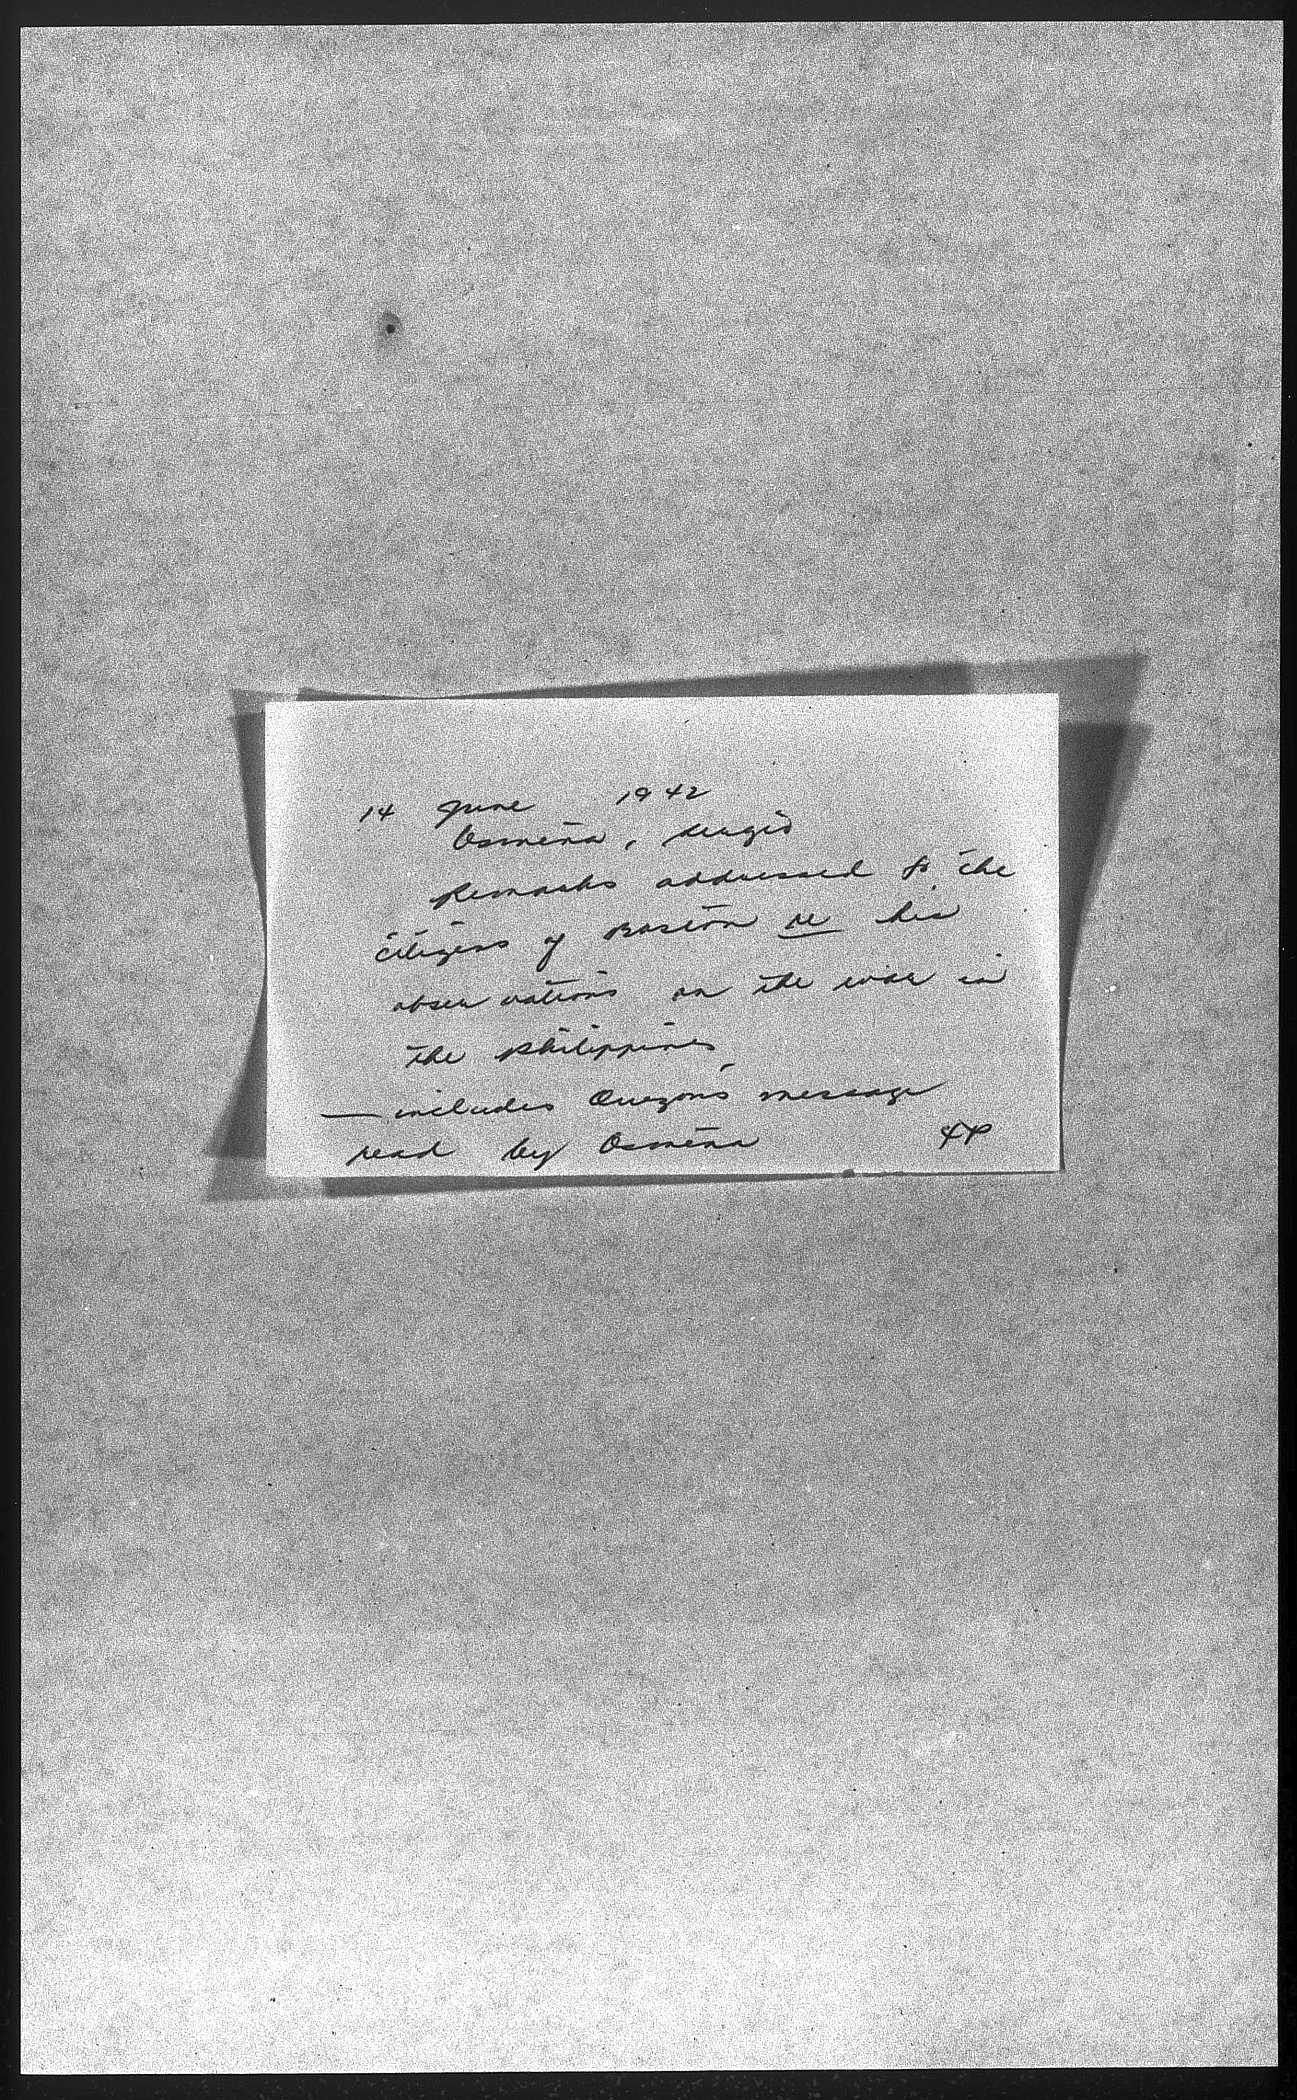 14 June 1942
Osmeña, Sergio
Remarks addressed to the
citizens of Boston re his
observations on the war in
the Philippines
— includes Quezon's message
read by Osmeña 4p